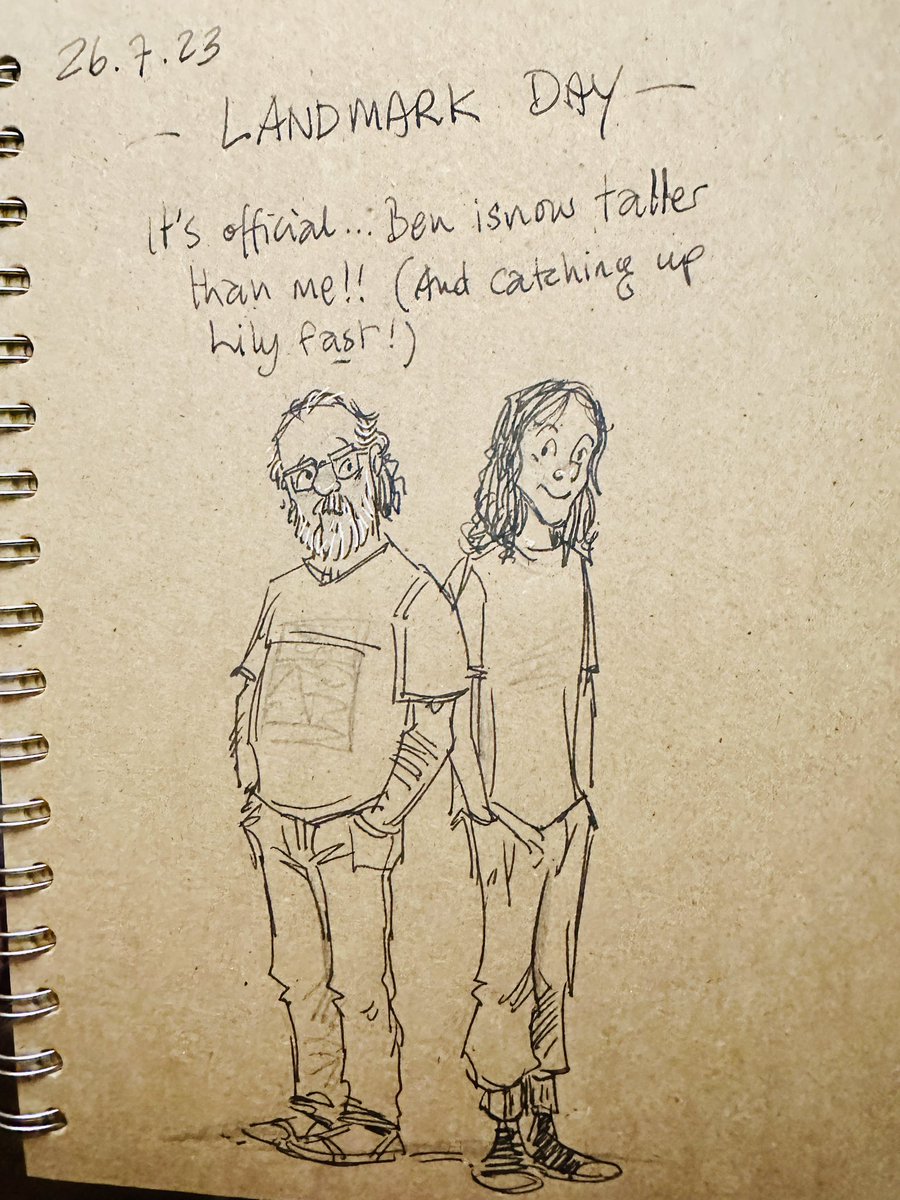 26.7.23
- LANDMARK DAY -
It's official... Ben isnow taller
than me!! (And catching up
Lily fast!)